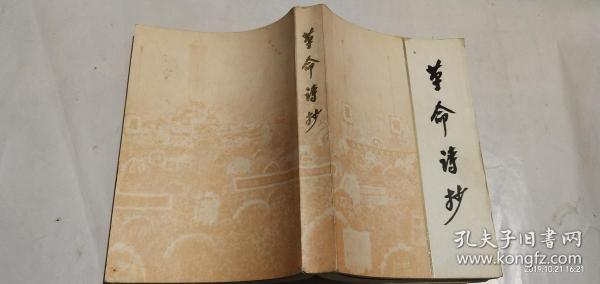 革命诗抄
革命诗抄
孔夫子旧书网
www.kongfz.com
2019.10.21 16:21